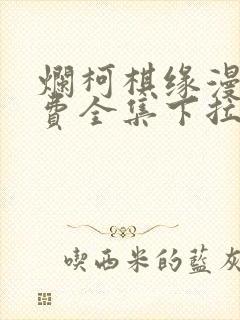 爛柯棋缘漫
費全集下拉
喫西米的藍灰